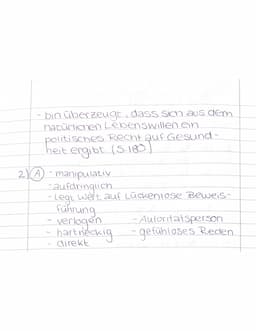 - bin überzeugt, dass sich aus dem
natürlichen Lebenswillen ein
politisches Recht auf Gesund-
heit ergibt (S.183)
2) A - manipulativ
- aufdringlich
- legt Wert auf Lückenlose Beweis-
führung
- verlogen - Autoritätsperson
- hartnäckig - gefühlloses Reden
- direkt